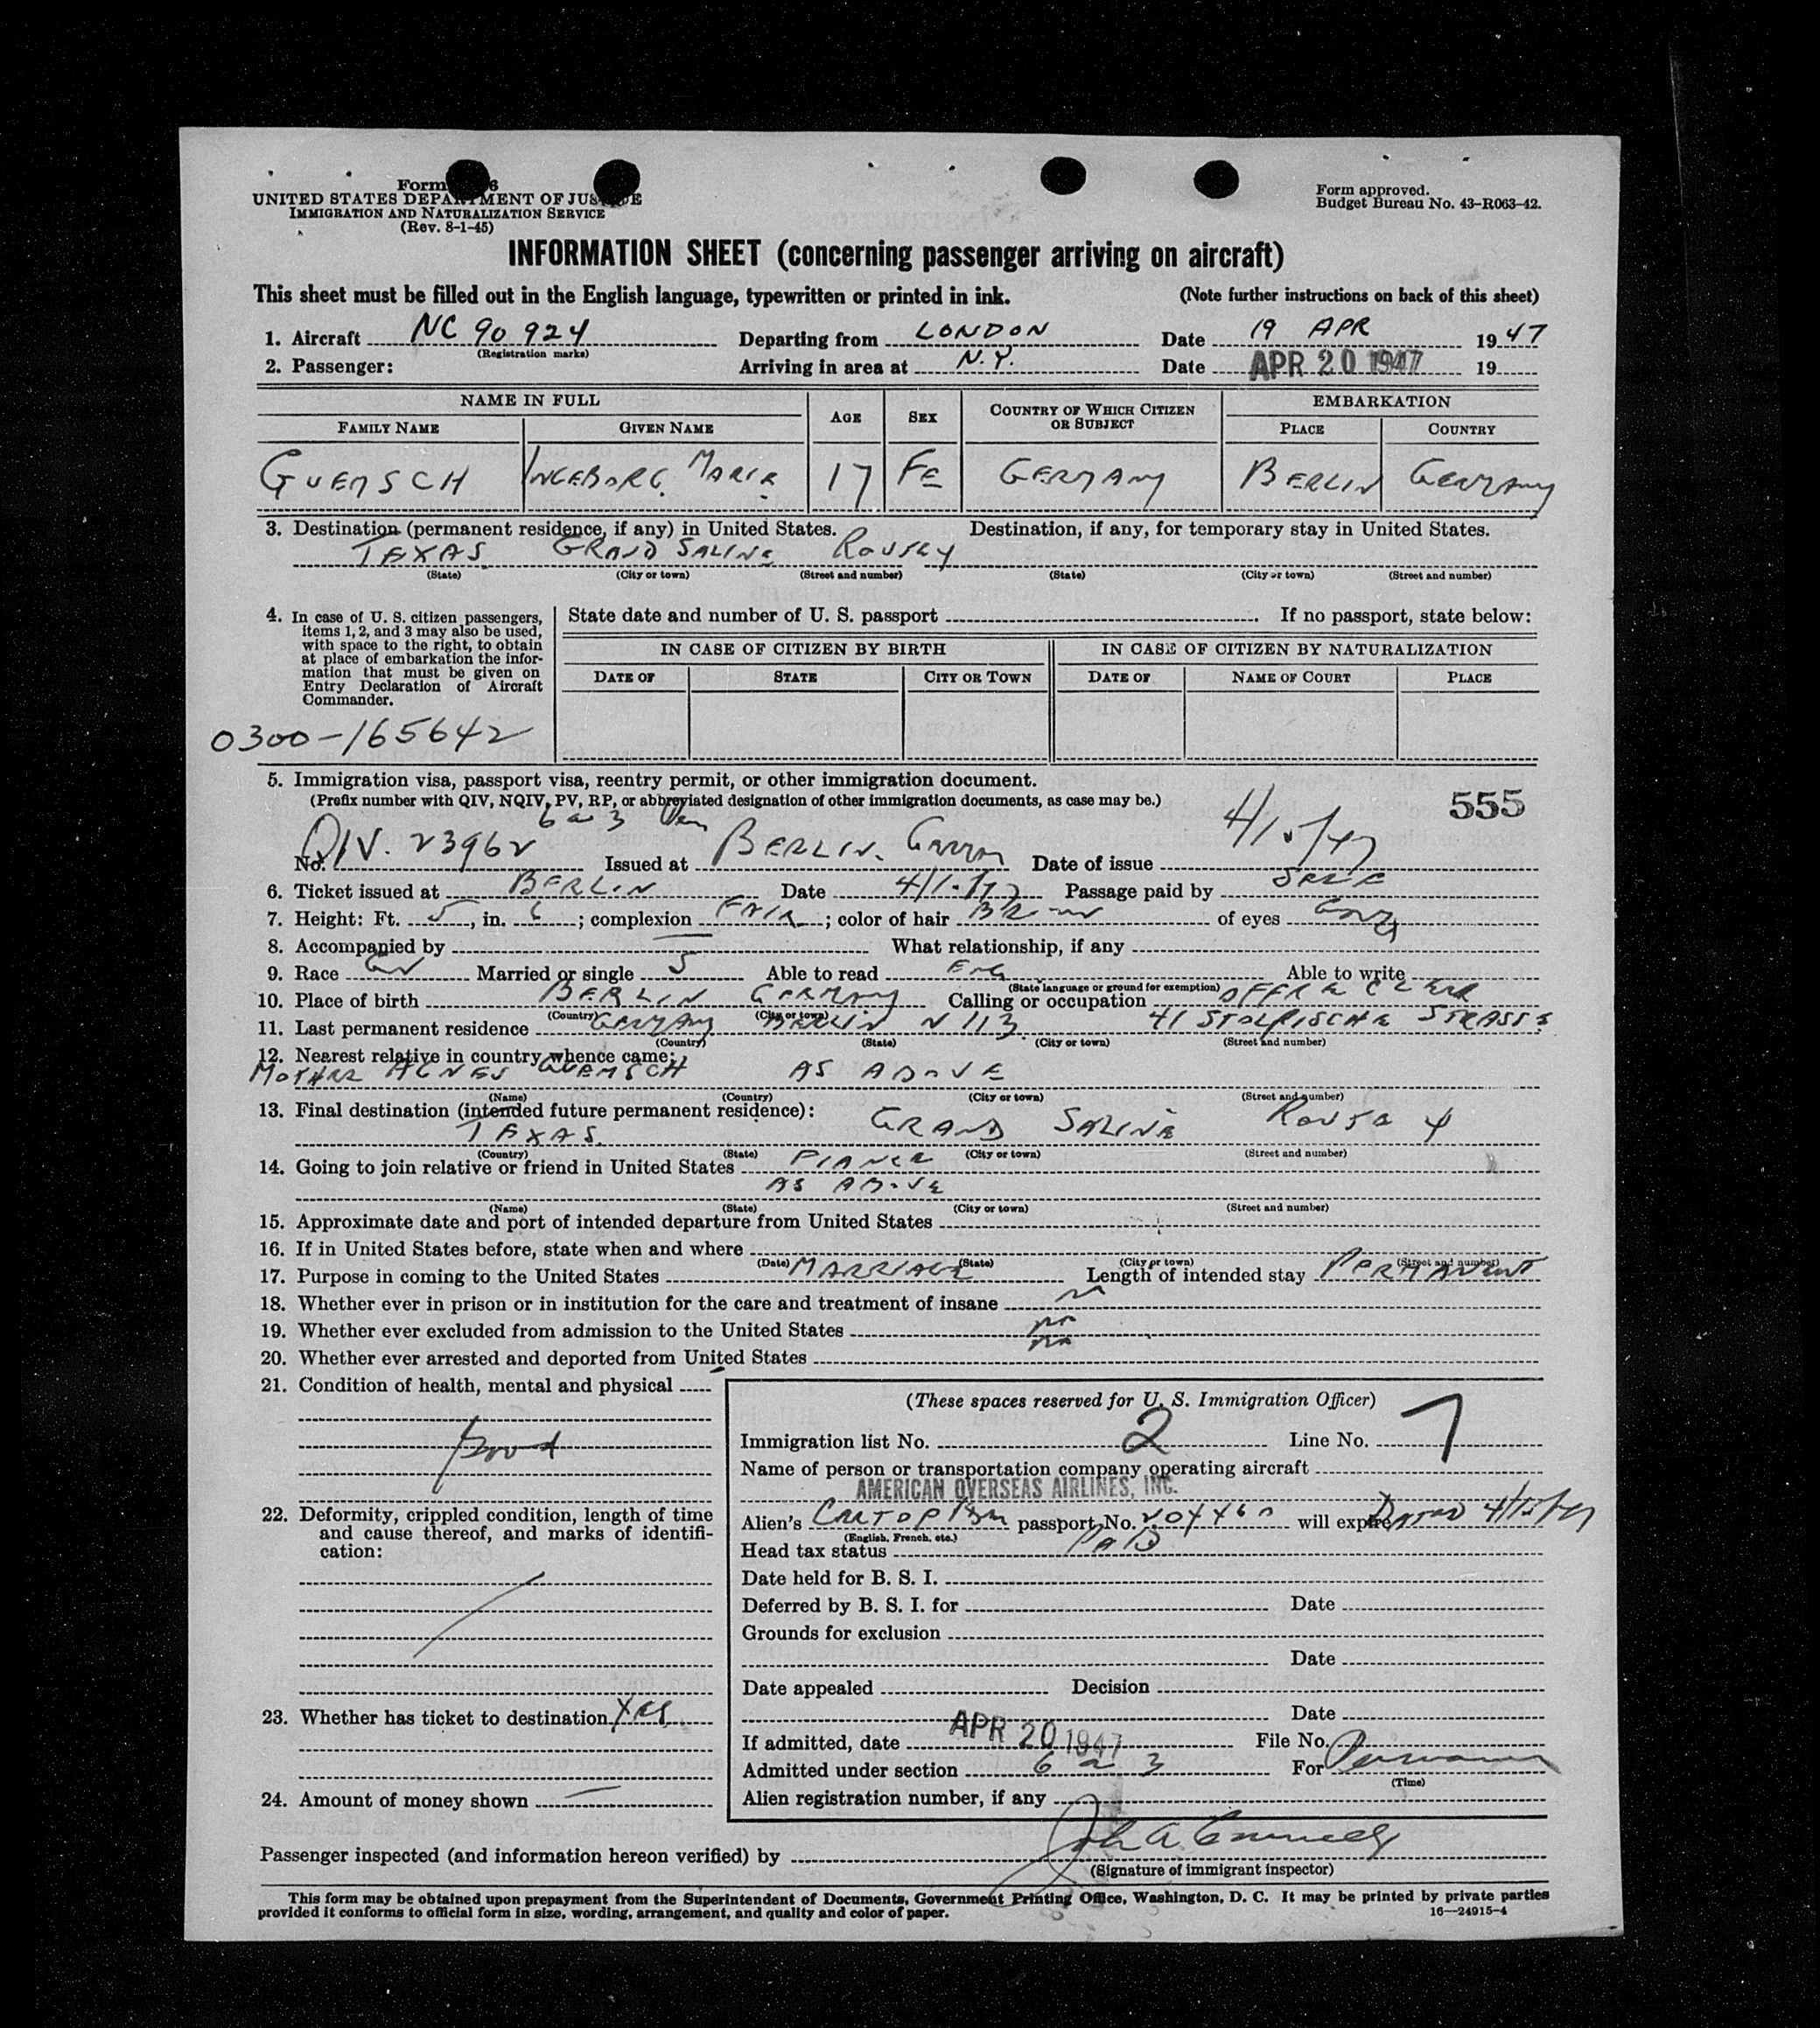 Form 6
UNITED STATES DEPARTMENT OF JUSTICE
IMMIGRATION AND NATURALIZATION SERVICE
(Rev. 8-1-45)
Form approved.
Budget Bureau No. 43-R063-42.
INFORMATION SHEET (concerning passenger arriving on aircraft)
This sheet must be filled out in the English language, typewritten or printed in ink. (Note further instructions on back of this sheet)
1. Aircraft NC 90 924 Departing from LONDON Date 19 APR 1947
(Registration marks)
2. Passenger: Arriving in area at N.Y. Date APR 20 1947 19
NAME IN FULL AGE SEX COUNTRY OF WHICH CITIZEN OR SUBJECT EMBARKATION
FAMILY NAME GIVEN NAME PLACE COUNTRY
GUEMSCH INGEBORG MARIA 17 FE GERMANY BERLIN GERMANY
3. Destination (permanent residence, if any) in United States. Destination, if any, for temporary stay in United States.
TEXAS GRAND SALINE
(State) (City or town) (Street and number) (State) (City or town) (Street and number)
4. In case of U. S. citizen passengers, items 1, 2, and 3 may also be used, with space to the right, to obtain at place of embarkation the information that must be given on Entry Declaration of Aircraft Commander.
State date and number of U. S. passport If no passport, state below:
IN CASE OF CITIZEN BY BIRTH IN CASE OF CITIZEN BY NATURALIZATION
DATE OF STATE CITY OR TOWN DATE OF NAME OF COURT PLACE
0300-165642
5. Immigration visa, passport visa, reentry permit, or other immigration document.
(Prefix number with QIV, NQIV, PV, RP, or abbreviated designation of other immigration documents, as case may be.)
555
6 a 3
No. QIV. 23962 Issued at BERLIN. Date of issue
6. Ticket issued at BERLIN Date Passage paid by
7. Height: Ft. 5, in. 6; complexion FAIR; color of hair BROWN of eyes
8. Accompanied by What relationship, if any
9. Race Married or single S Able to read ENG Able to write
(State language or ground for exemption)
10. Place of birth BERLIN GERMANY Calling or occupation OFFICE CLERK
(Country) (City or town)
11. Last permanent residence GERMANY BERLIN N 113. 41 STOLPISCHE STRASSE
(Country) (State) (City or town) (Street and number)
12. Nearest relative in country whence came:
MOTHER AGNES GUEMSCH AS ABOVE
(Name) (Country) (City or town) (Street and number)
13. Final destination (intended future permanent residence):
TEXAS. GRAND SALINE 4
(Country) (State) (City or town) (Street and number)
14. Going to join relative or friend in United States
AS ABOVE
(Name) (State) (City or town) (Street and number)
15. Approximate date and port of intended departure from United States
16. If in United States before, state when and where
(Date) (State) (City or town) (Street and number)
17. Purpose in coming to the United States MARRIAGE Length of intended stay PERMANENT
18. Whether ever in prison or in institution for the care and treatment of insane no
19. Whether ever excluded from admission to the United States no
20. Whether ever arrested and deported from United States no
21. Condition of health, mental and physical
good
22. Deformity, crippled condition, length of time and cause thereof, and marks of identification:
23. Whether has ticket to destination YES
24. Amount of money shown
(These spaces reserved for U. S. Immigration Officer)
Immigration list No. 2 Line No. 7
Name of person or transportation company operating aircraft
AMERICAN OVERSEAS AIRLINES, INC.
Alien's passport No. will expire DATED
(English, French, etc.)
Head tax status PAID
Date held for B. S. I.
Deferred by B. S. I. for Date
Grounds for exclusion
Date
Date appealed Decision
Date
If admitted, date APR 20 1947 File No.
Admitted under section 6 a 3 For Permanent
(Time)
Alien registration number, if any
Passenger inspected (and information hereon verified) by John A.
(Signature of immigrant inspector)
This form may be obtained upon prepayment from the Superintendent of Documents, Government Printing Office, Washington, D. C. It may be printed by private parties
provided it conforms to official form in size, wording, arrangement, and quality and color of paper. 16—24915-4